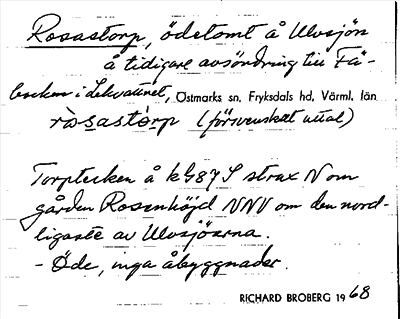 Rosastorp, ödetomt å Ulvsjön
å tidigare avsöndring till Fä-
backen i Lekvattnet, Östmarks sn, Fryksdals hd, Värml. län
ròsastòrp (försvenskat uttal)
Torptecken å kG87 S strax N om
gården Rosenhöjd NNV om den nord-
ligaste av Ulvsjöarna.
- Öde, inga åbyggnader.
RICHARD BROBERG 1968